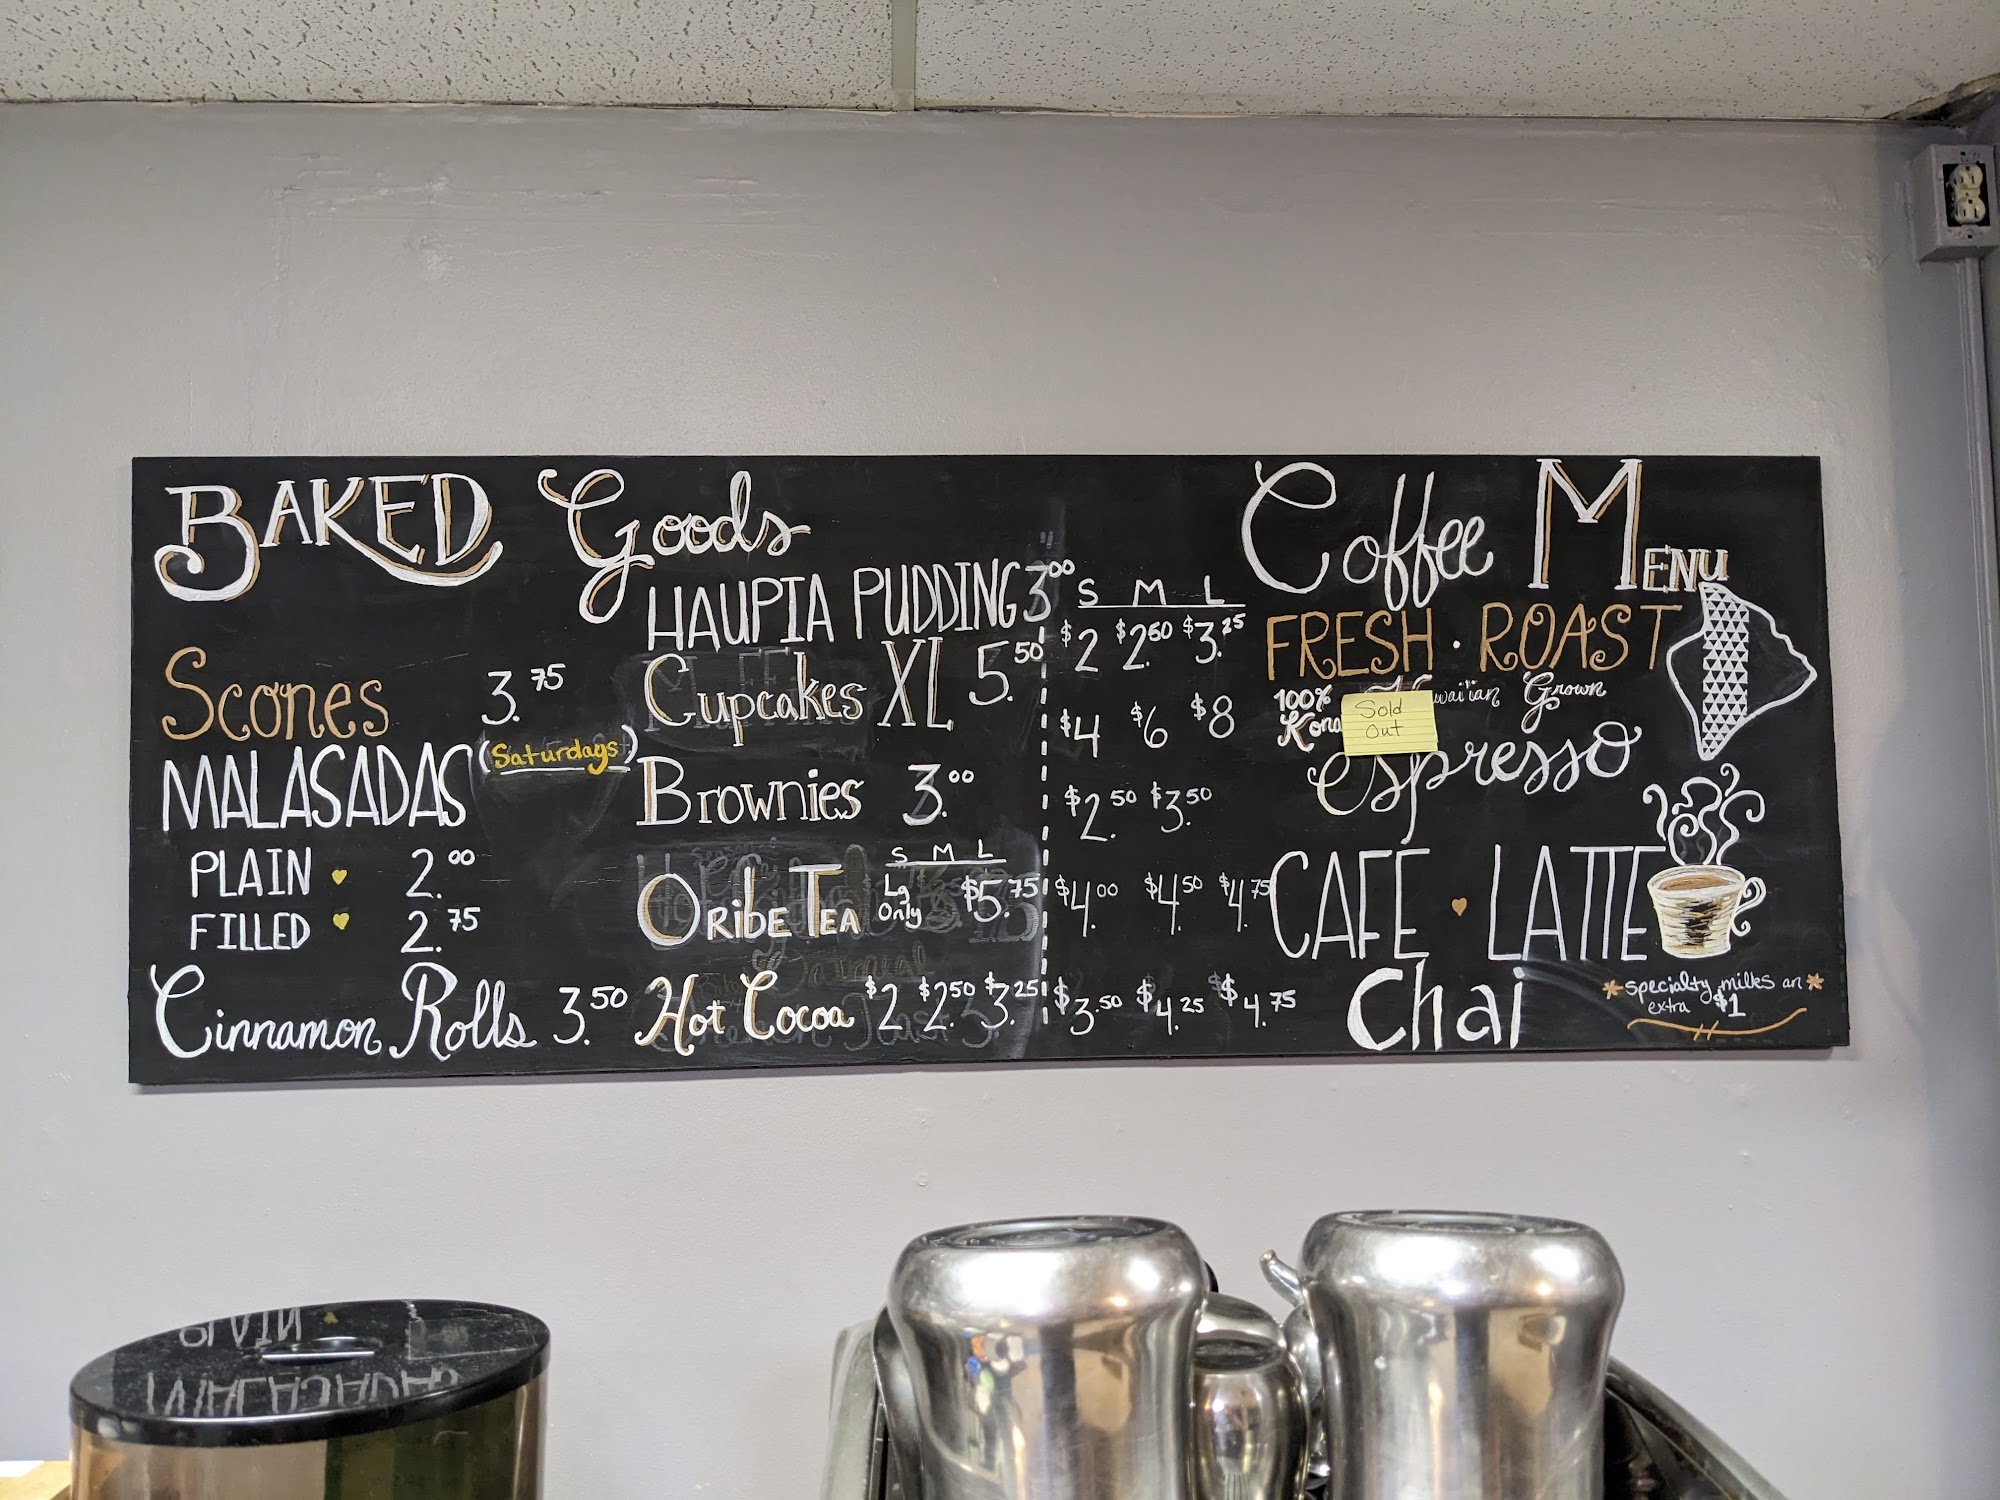 BAKED Goods
Scones 3.75
MALASADAS (Saturdays)
PLAIN 2.00
FILLED 2.75
Cinnamon Rolls 3.50
HAUPIA PUDDING 3.00
Cupcakes XL 5.50
Brownies 3.00
S M L
ORIBE TEA Lg Only $5.75
Hot Cocoa $2 $2.50 $3.25
Coffee MENU
S M L
$2 $2.50 $3.25 FRESH · ROAST
$4 $6 $8 100% Kona Grown
Sold
Out
$2.50 $3.50 espresso
$4.00 $4.50 $4.75 CAFE LATTE
$3.50 $4.25 $4.75 Chai
*specialty milks an*
extra $1
PLAIN
MALASADAS